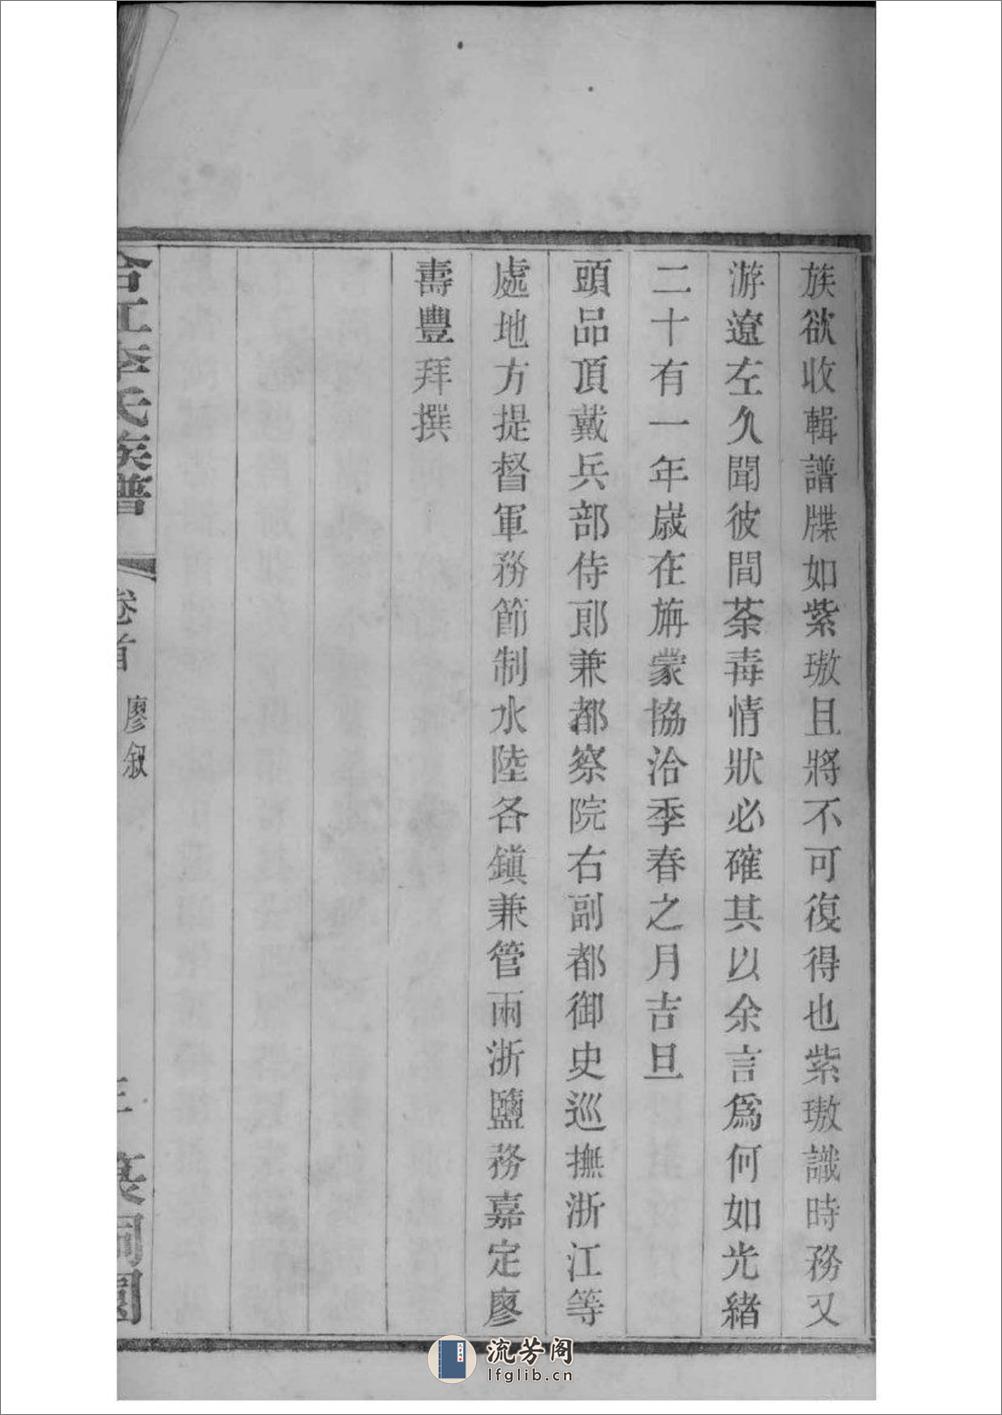 族欲收輯譜牒如紫璈且將不可復得也紫璈識時務又
游遼左久聞彼間荼毒情狀必確其以余言爲何如光緒
二十有一年歲在旃蒙協洽季春之月吉旦
頭品頂戴兵部侍郎兼都察院右副都御史巡撫浙江等
處地方提督軍務節制水陸各鎮兼管兩浙鹽務嘉定廖
壽豐拜撰
合江李氏族譜
卷首
廖叙
流芳阁
lfglib.cn